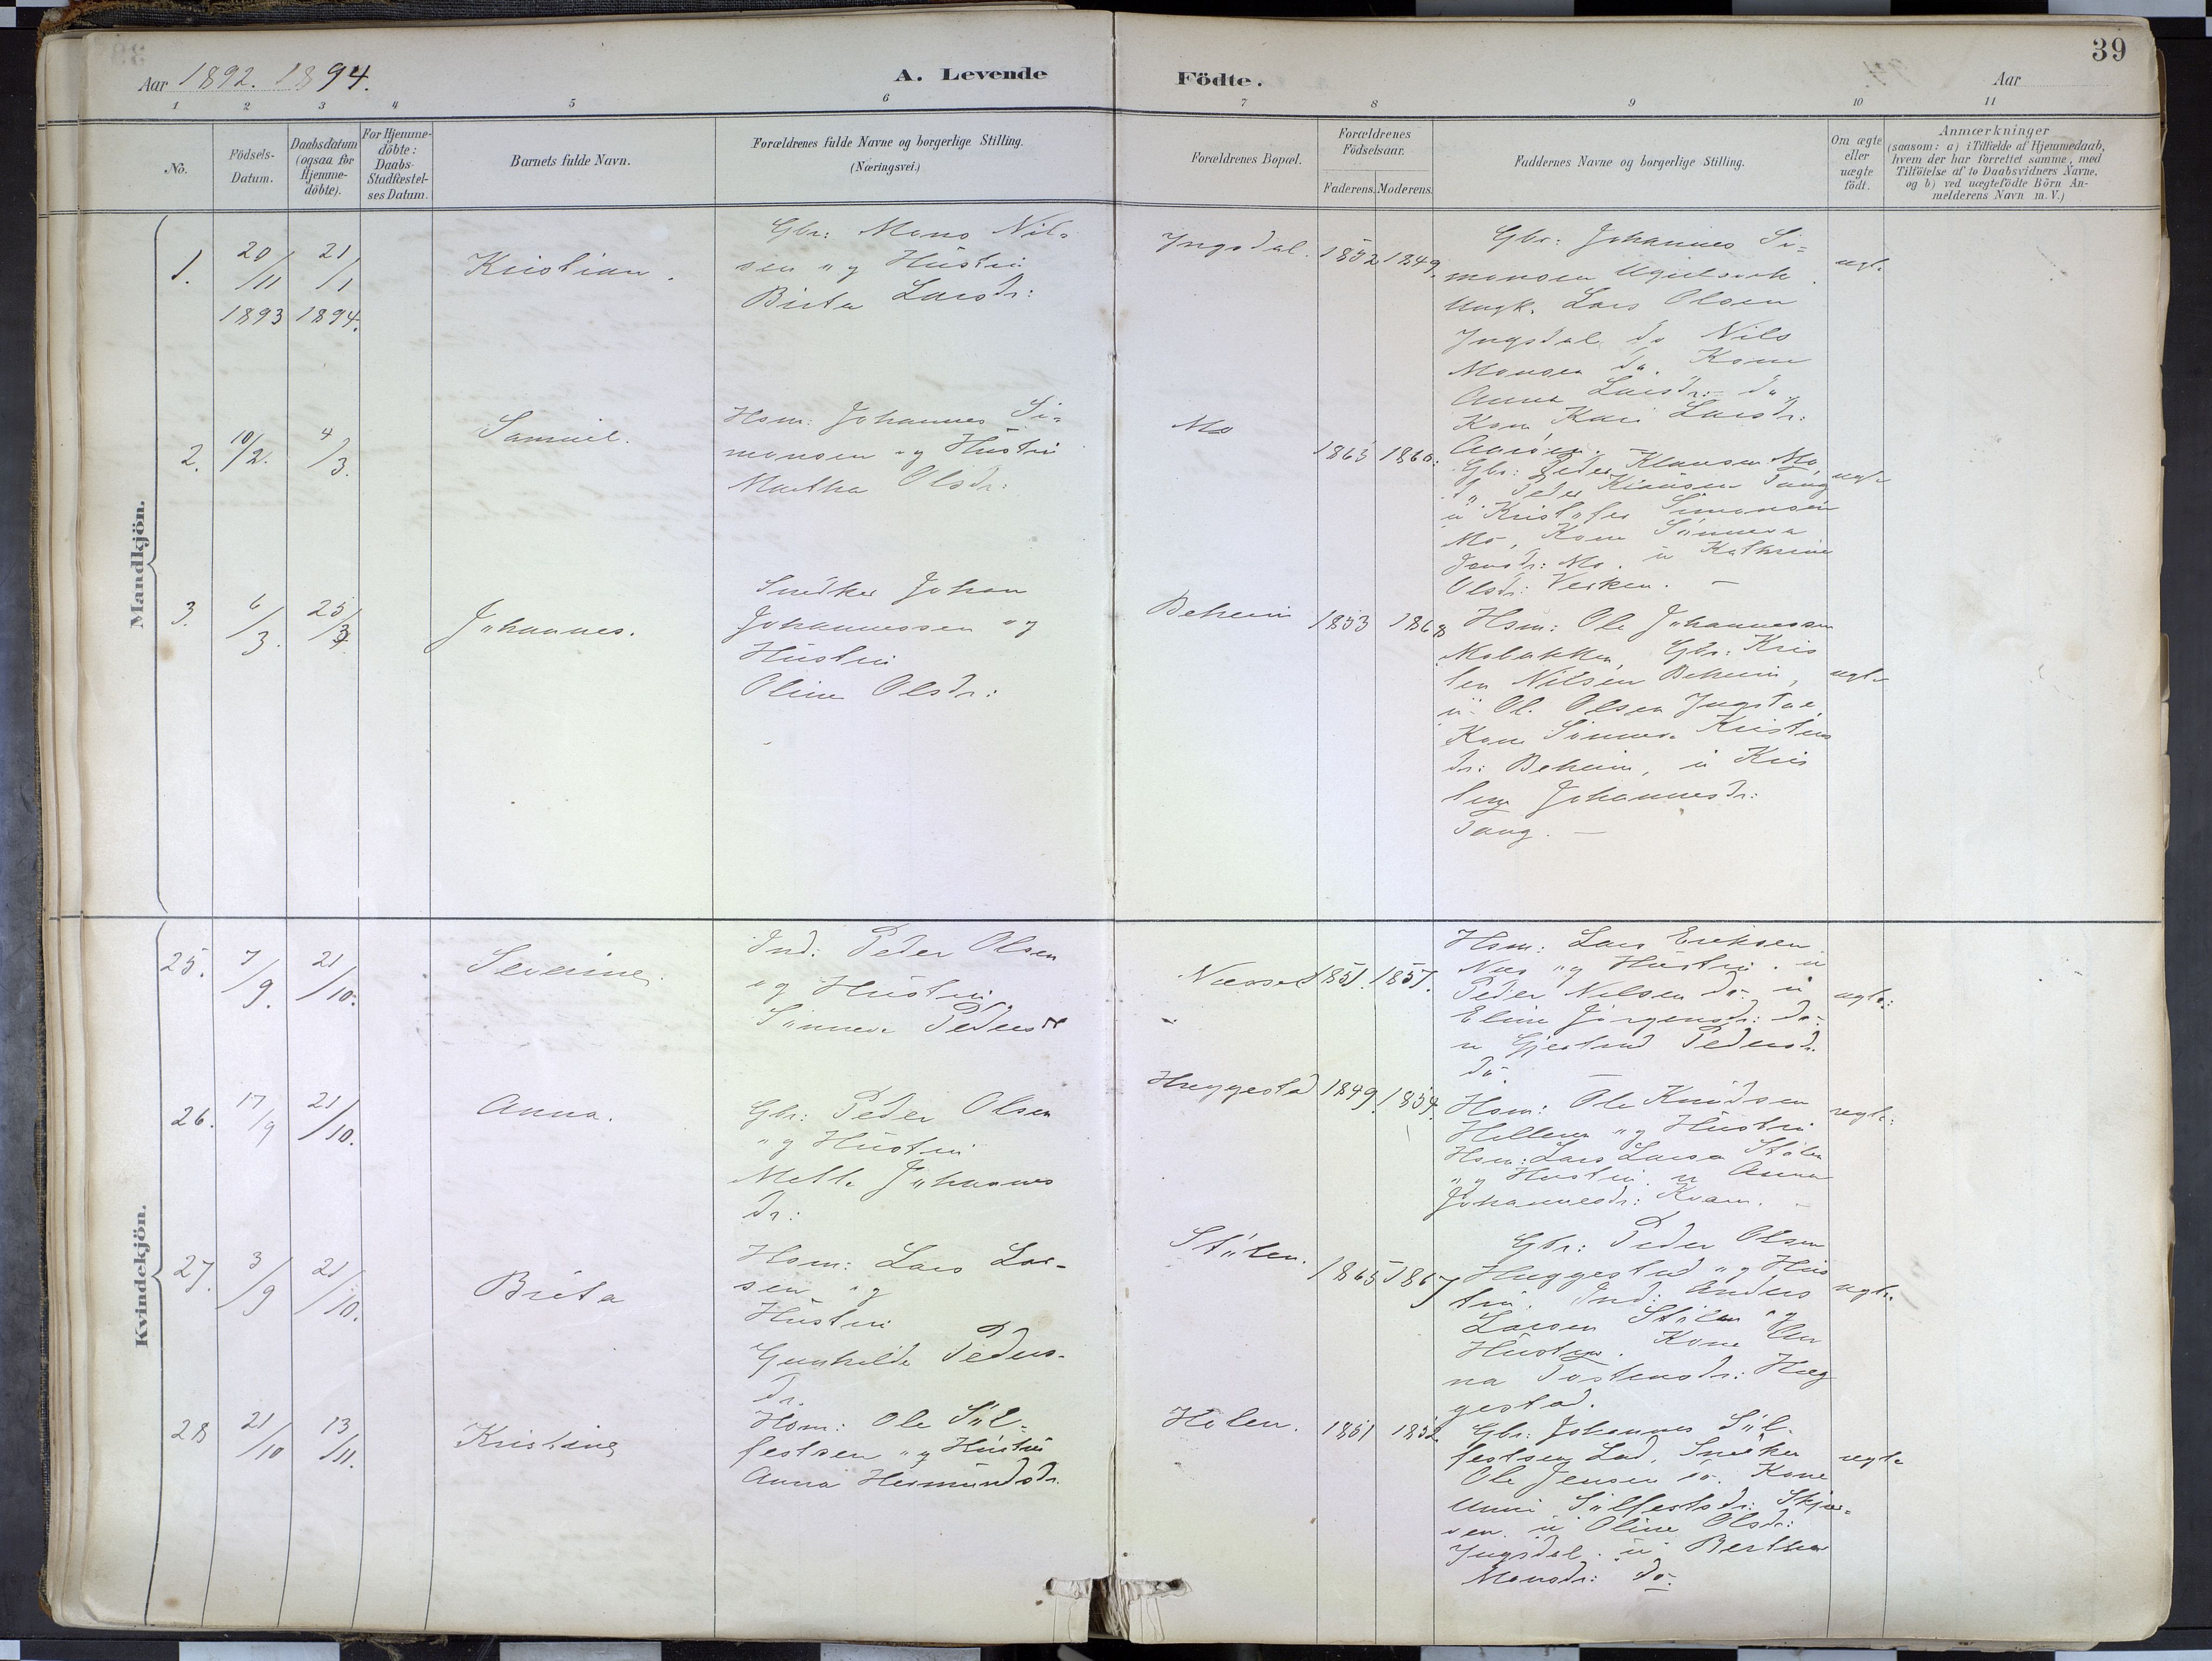 39
Aar 1892. 1894.
A. Levende
Födte.
Aar
1 2 3 4 5 6 7 8 9 10 11
No.
Födsels-
Datum.
Daabsdatum
(ogsaa for
Hjemme-
döbte).
For Hjemme-
döbte:
Daabs-
Stadfæstel-
ses Datum.
Barnets fulde Navn.
Forældrenes fulde Navne og borgerlige Stilling.
(Næringsvei.)
Forældrenes Bopæl.
Forældrenes
Födselsaar.
Faderens. Moderens.
Faddernes Navne og borgerlige Stilling.
Om ægte
eller
uægte
födt.
Anmærkninger
(saasom: a) i Tilfælde af Hjemmedaab,
hvem der har forrettet samme, med
Tilföielse af to Daabsvidners Navne,
og b) ved uægtefödte Börn An-
melderens Navn m. V.)
Mandkjön.
1.
20/11
1893
21/1
1894.
Kristian.
Gbr: Mons Nil-
sen og Hustru
Birta Larsdr:
Yngsdal.
1852 1849.
Gbr: Johannes Si-
monsen
Ungk. Lars Olsen
Yngsdal do Nils
Monsen do. Kone
Anna Larsdr: do
Kone Kari Larsdr:
ægte
2.
10/2.
4/3.
Samuel.
Hsm: Johannes Si-
monsen og Hustru
Martha Olsdr:
Mo
1863
Gbr: Peder Klausen Mo,
Peder Klausen Tang
Kristofer Simonsen
Mo, Kone Sünneva
Jonsdr: Mo. Kathrine
Olsdr: Verken. —
ægte
3.
6/3.
25/3
Johannes.
Snedker Johan
Johannessen og
Hustru
Oline Olsdr:
Beheim
1853 1868
Hsm: Ole Johannessen
Mobakken, Gbr: Kris
ten Nilsen Beheim,
Ol. Olsen
Kone Sünneva Kristens
dr: Beheim, Kris
Johannesdr:
Tang. —
ægte
Kvindekjön.
25.
7/9.
21/10.
Severine
Ind: Peder Olsen
og Hustru
Sünneva Pedersdr
Næsset
1851. 1857.
Hsm: Lars Eriksen
Næs og Hustru.
Peder Nilsen do.
Eline Jörgensdr: do.
Gjertrud Pedersdr.
do. —
ægte:
26.
17/9
21/10.
Anna.
Gbr: Peder Olsen
og Hustru
Mette Johannes
dr:
Huggestad
1849. 1854.
Hsm: Ole Knudsen
og Hustru
Hsm: Lars Larsen Stölen
og Hustru. Anna
Johannesdr: Kvam. —
ægte:
27.
3/9
21/10.
Brita
Hsm: Lars Lar-
sen og
Hustru
Gunhilde Peders-
dr.
Stölen.
1865 1867
Gbr: Peder Olsen
Huggestad og Hus
tru. Ind: Anders
Larsen Stölen og
Hustru. Kone An
na Tostensdr: Hug
gestad.
ægte.
28
21/10
13/11.
Kristine
Hsm: Ole Söl-
festsen og Hustru
Anna Hermundsdr.
Holen.
1851 1852.
Gbr: Johannes Söl-
festsen Lad, Snedker
Ole Jensen do. Kone
Unni Sölfestsdr:
Oline Olsdr:
Yngsdal. Bertha
Monsdr: do.
ægte